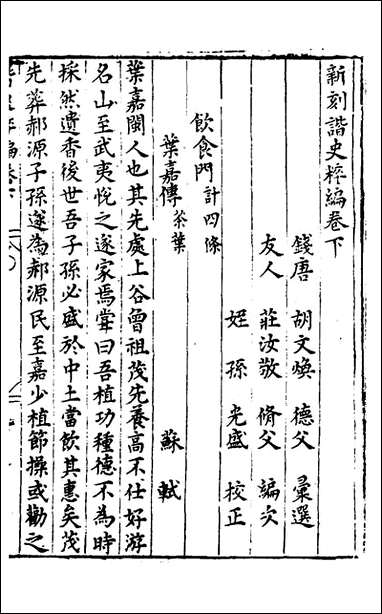 新刻諧史粹編卷下
錢唐 胡文煥 德父 彙選
友人 莊汝敬 脩父 編次
姪孫 光盛 校正
飲食門 計四條
葉嘉傳 茶葉 蘇軾
葉嘉閩人也其先處上谷曾祖茂先養高不仕好游
名山至武夷悅之遂家焉甞曰吾植功種德不為時
採然遺香後世吾子孫必盛於中土當飲其惠矣茂
先葬郝源子孫遂為郝源民至嘉少植節操或勸之